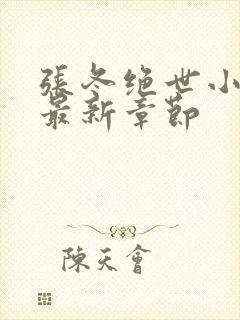 張冬绝世小
最新章節
陳天會